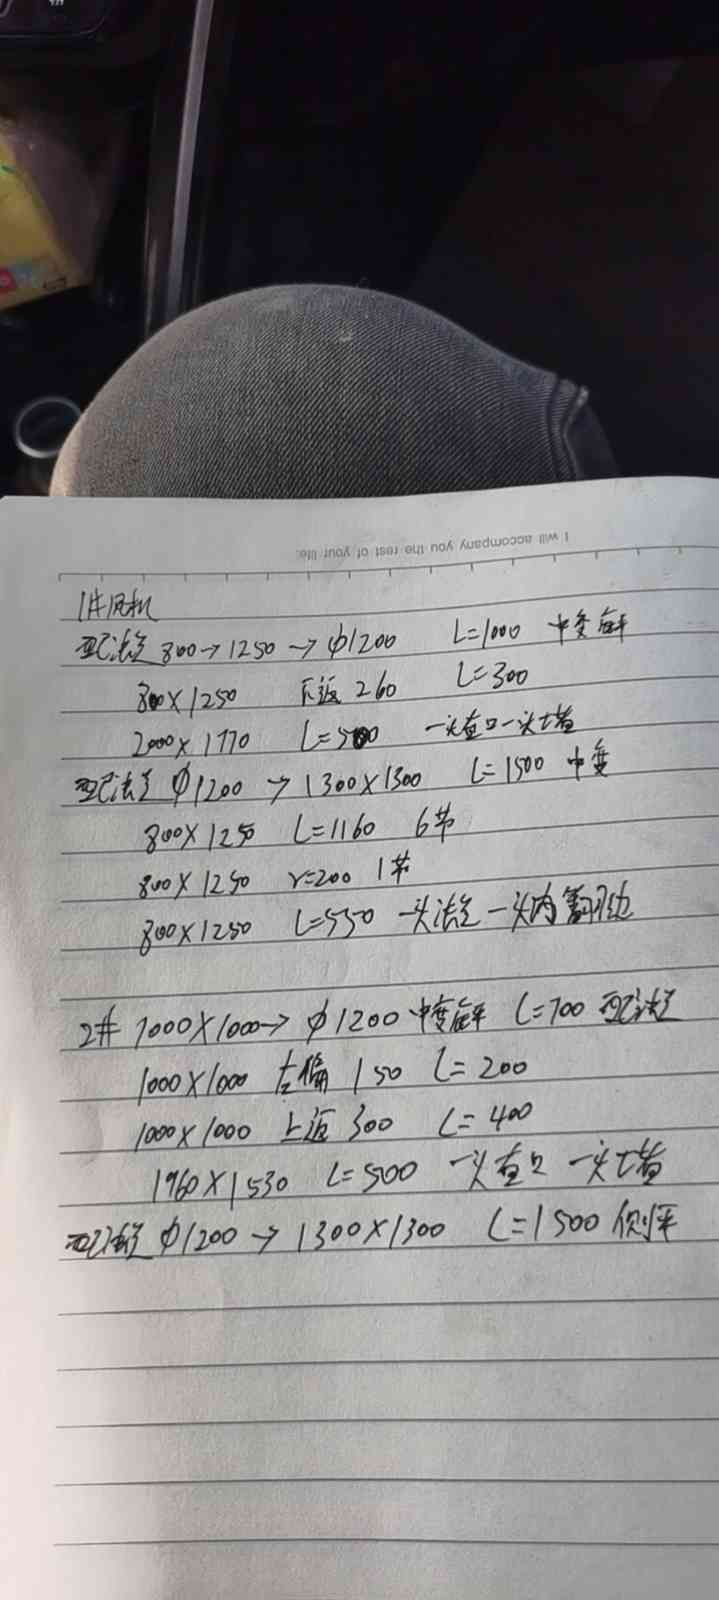 I will accompany you the rest of your life.
1#风机
配法兰 800→1250→φ1200 L=1000 中变底平
800×1250 下返260 L=300
2000×1770 L=500 一头直口一头堵
配法兰 φ1200→1300×1300 L=1500 中变
800×1250 L=1160 6节
800×1250 r=200 1节
800×1250 L=550 一头法兰一头内翻边
2# 1000×1000→φ1200 中变底平 L=700 配法兰
1000×1000 左偏150 L=200
1000×1000 上返300 L=400
1960×1530 L=500 一头直口 一头堵
配法兰 φ1200→1300×1300 L=1500 侧平